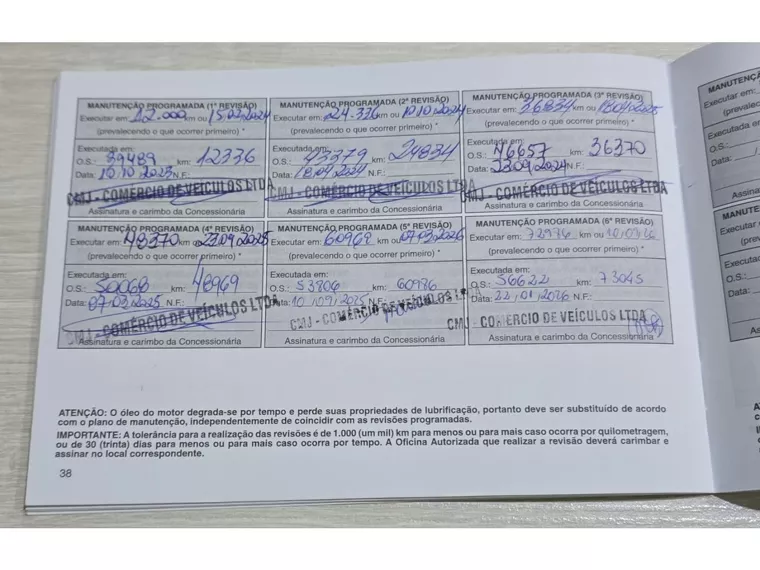 MANUTENÇÃO PROGRAMADA (1ª REVISÃO)
Executar em: 12.000 km ou 15.02.2024
(prevalecendo o que ocorrer primeiro) *
Executada em:
O.S.: 39489 km: 12336
Data: 10.10.2023 N.F.:
CMJ - COMÉRCIO DE VEÍCULOS LTDA
Assinatura e carimbo da Concessionária
MANUTENÇÃO PROGRAMADA (2ª REVISÃO)
Executar em: 24.336 km ou 10.10.2024
(prevalecendo o que ocorrer primeiro) *
Executada em:
O.S.: 43379 km: 24834
Data: 18.04.2024 N.F.:
CMJ - COMÉRCIO DE VEÍCULOS LTDA
Assinatura e carimbo da Concessionária
MANUTENÇÃO PROGRAMADA (3ª REVISÃO)
Executar em: 36834 km ou 18.04.2025
(prevalecendo o que ocorrer primeiro) *
Executada em:
O.S.: 46657 km: 36370
Data: 23.09.2024 N.F.:
CMJ - COMÉRCIO DE VEÍCULOS LTDA
Assinatura e carimbo da Concessionária
MANUTENÇÃO PROGRAMADA (4ª REVISÃO)
Executar em: 48370 km ou 23.09.2025
(prevalecendo o que ocorrer primeiro) *
Executada em:
O.S.: 50068 km: 48969
Data: 07.03.2025 N.F.:
CMJ - COMÉRCIO DE VEÍCULOS LTDA
Assinatura e carimbo da Concessionária
MANUTENÇÃO PROGRAMADA (5ª REVISÃO)
Executar em: 60969 km ou 07.03.2026
(prevalecendo o que ocorrer primeiro) *
Executada em:
O.S.: 53806 km: 60986
Data: 10/09/2025 N.F.:
CMJ - COMÉRCIO DE VEÍCULOS LTDA
Assinatura e carimbo da Concessionária
MANUTENÇÃO PROGRAMADA (6ª REVISÃO)
Executar em: 72986 km ou
(prevalecendo o que ocorrer primeiro) *
Executada em:
O.S.: 56622 km: 73045
Data: 22/01/2026 N.F.:
CMJ - COMÉRCIO DE VEÍCULOS LTDA
Assinatura e carimbo da Concessionária
ATENÇÃO: O óleo do motor degrada-se por tempo e perde suas propriedades de lubrificação, portanto deve ser substituído de acordo
com o plano de manutenção, independentemente de coincidir com as revisões programadas.
IMPORTANTE: A tolerância para a realização das revisões é de 1.000 (um mil) km para menos ou para mais caso ocorra por quilometragem,
ou de 30 (trinta) dias para menos ou para mais caso ocorra por tempo. A Oficina Autorizada que realizar a revisão deverá carimbar e
assinar no local correspondente.
38